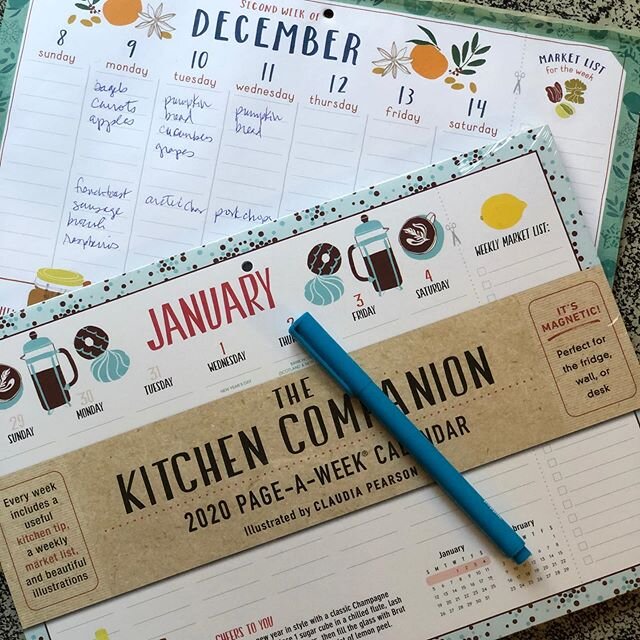 SECOND WEEK OF
DECEMBER
8
sunday
9
monday
10
tuesday
11
wednesday
12
thursday
13
friday
14
saturday
MARKET LIST
for the week
bagels
carrots
apples
pumpkin
bread
cucumbers
grapes
pumpkin
bread
french toast
sausage
broccoli
raspberries
arctic char
pork chops
JANUARY
29
SUNDAY
30
MONDAY
31
TUESDAY
1
WEDNESDAY
NEW YEAR'S DAY
2
3
FRIDAY
4
SATURDAY
WEEKLY MARKET LIST:
THE
KITCHEN COMPANION
2020 PAGE-A-WEEK® CALENDAR
Illustrated by CLAUDIA PEARSON
IT'S
MAGNETIC!
Perfect for
the fridge,
wall, or
desk
Every week
includes a
useful
kitchen tip,
a weekly
market list,
and beautiful
illustrations
CHEERS TO YOU
new year in style with a classic Champagne
1 sugar cube in a chilled flute, lash
then fill the glass with Brut
of lemon peel.
January
February